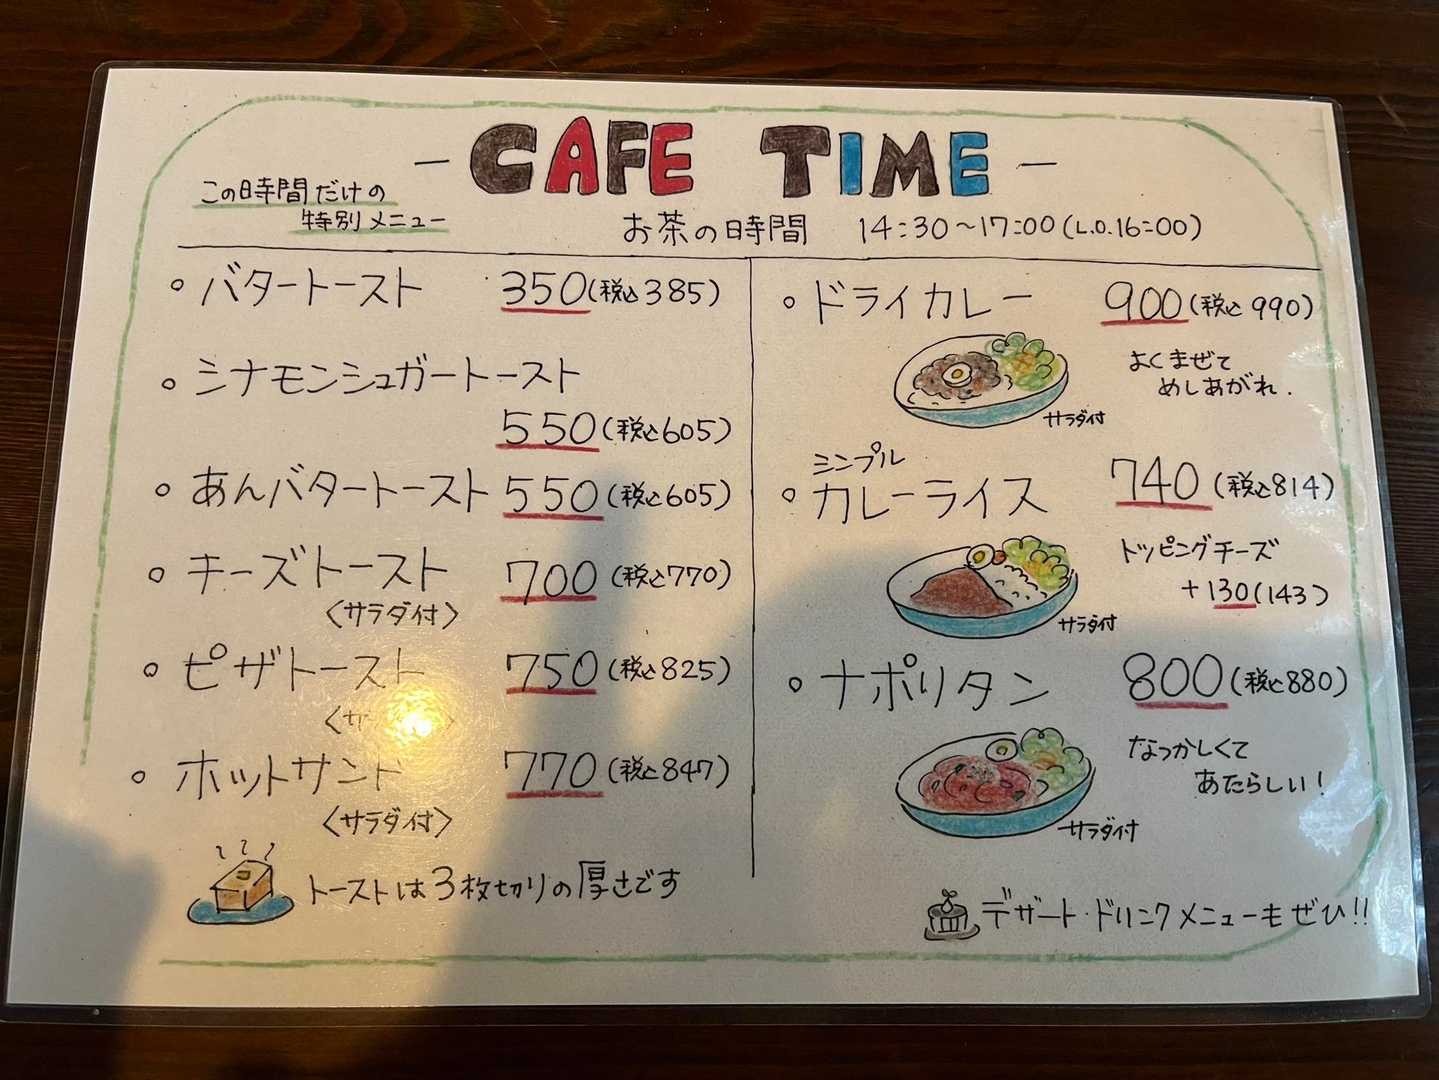 - CAFE TIME -
この時間だけの
特別メニュー
お茶の時間 14:30〜17:00(L.O.16:00)
○ バタートースト 350(税込385)
○ シナモンシュガートースト
550(税込605)
○ あんバタートースト 550(税込605)
○ チーズトースト 700(税込770)
〈サラダ付〉
○ ピザトースト 750(税込825)
○ ホットサンド 770(税込847)
〈サラダ付〉
トーストは3枚切りの厚さです
○ ドライカレー 900(税込990)
よくまぜて
めしあがれ.
サラダ付
シンプル
○ カレーライス 740(税込814)
トッピングチーズ
+130(143)
サラダ付
○ ナポリタン 800(税込880)
なつかしくて
あたらしい!
サラダ付
デザート・ドリンクメニューもぜひ!!